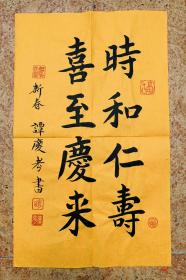 時和仁壽
喜至慶来
新春 譚慶考書